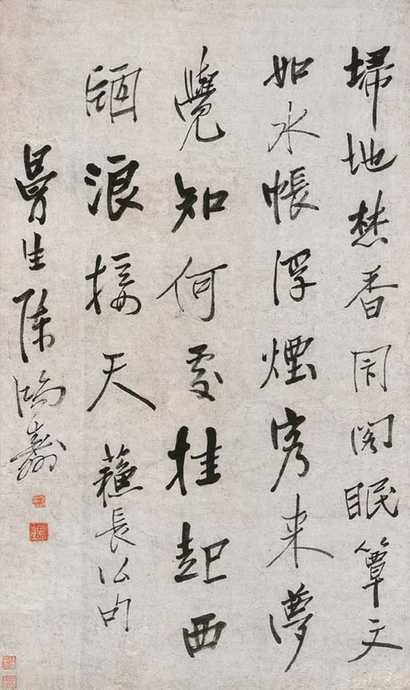 埽地焚香閉閣眠簟文
如水帳浮煙客来夢
覺知何處挂起西
牕浪接天 蘇長公句
曼生陳鴻壽